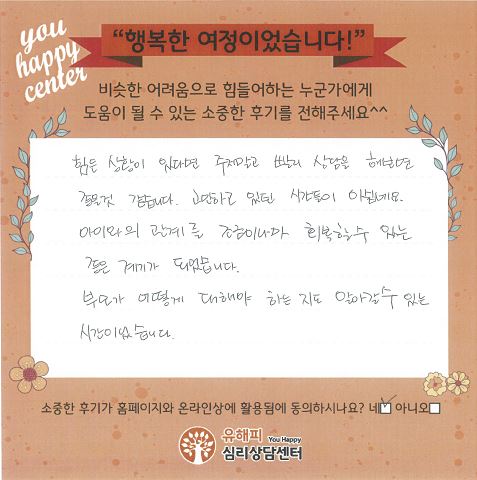 you
happy
center
“행복한 여정이었습니다!”
비슷한 어려움으로 힘들어하는 누군가에게
도움이 될 수 있는 소중한 후기를 전해주세요^^
힘든 상황이 있다면 주저말고 빨리 상담을 해보면
좋을것 같습니다. 고민하고 있던 시간들이 아쉽네요.
아이와의 관계를 조금이나마 회복할수 있는
좋은 계기가 되었습니다.
부모가 어떻게 대해야 하는지도 알아갈수 있는
시간이었습니다.
소중한 후기가 홈페이지와 온라인상에 활용됨에 동의하시나요? 네 아니오
유해피 You Happy
심리상담센터